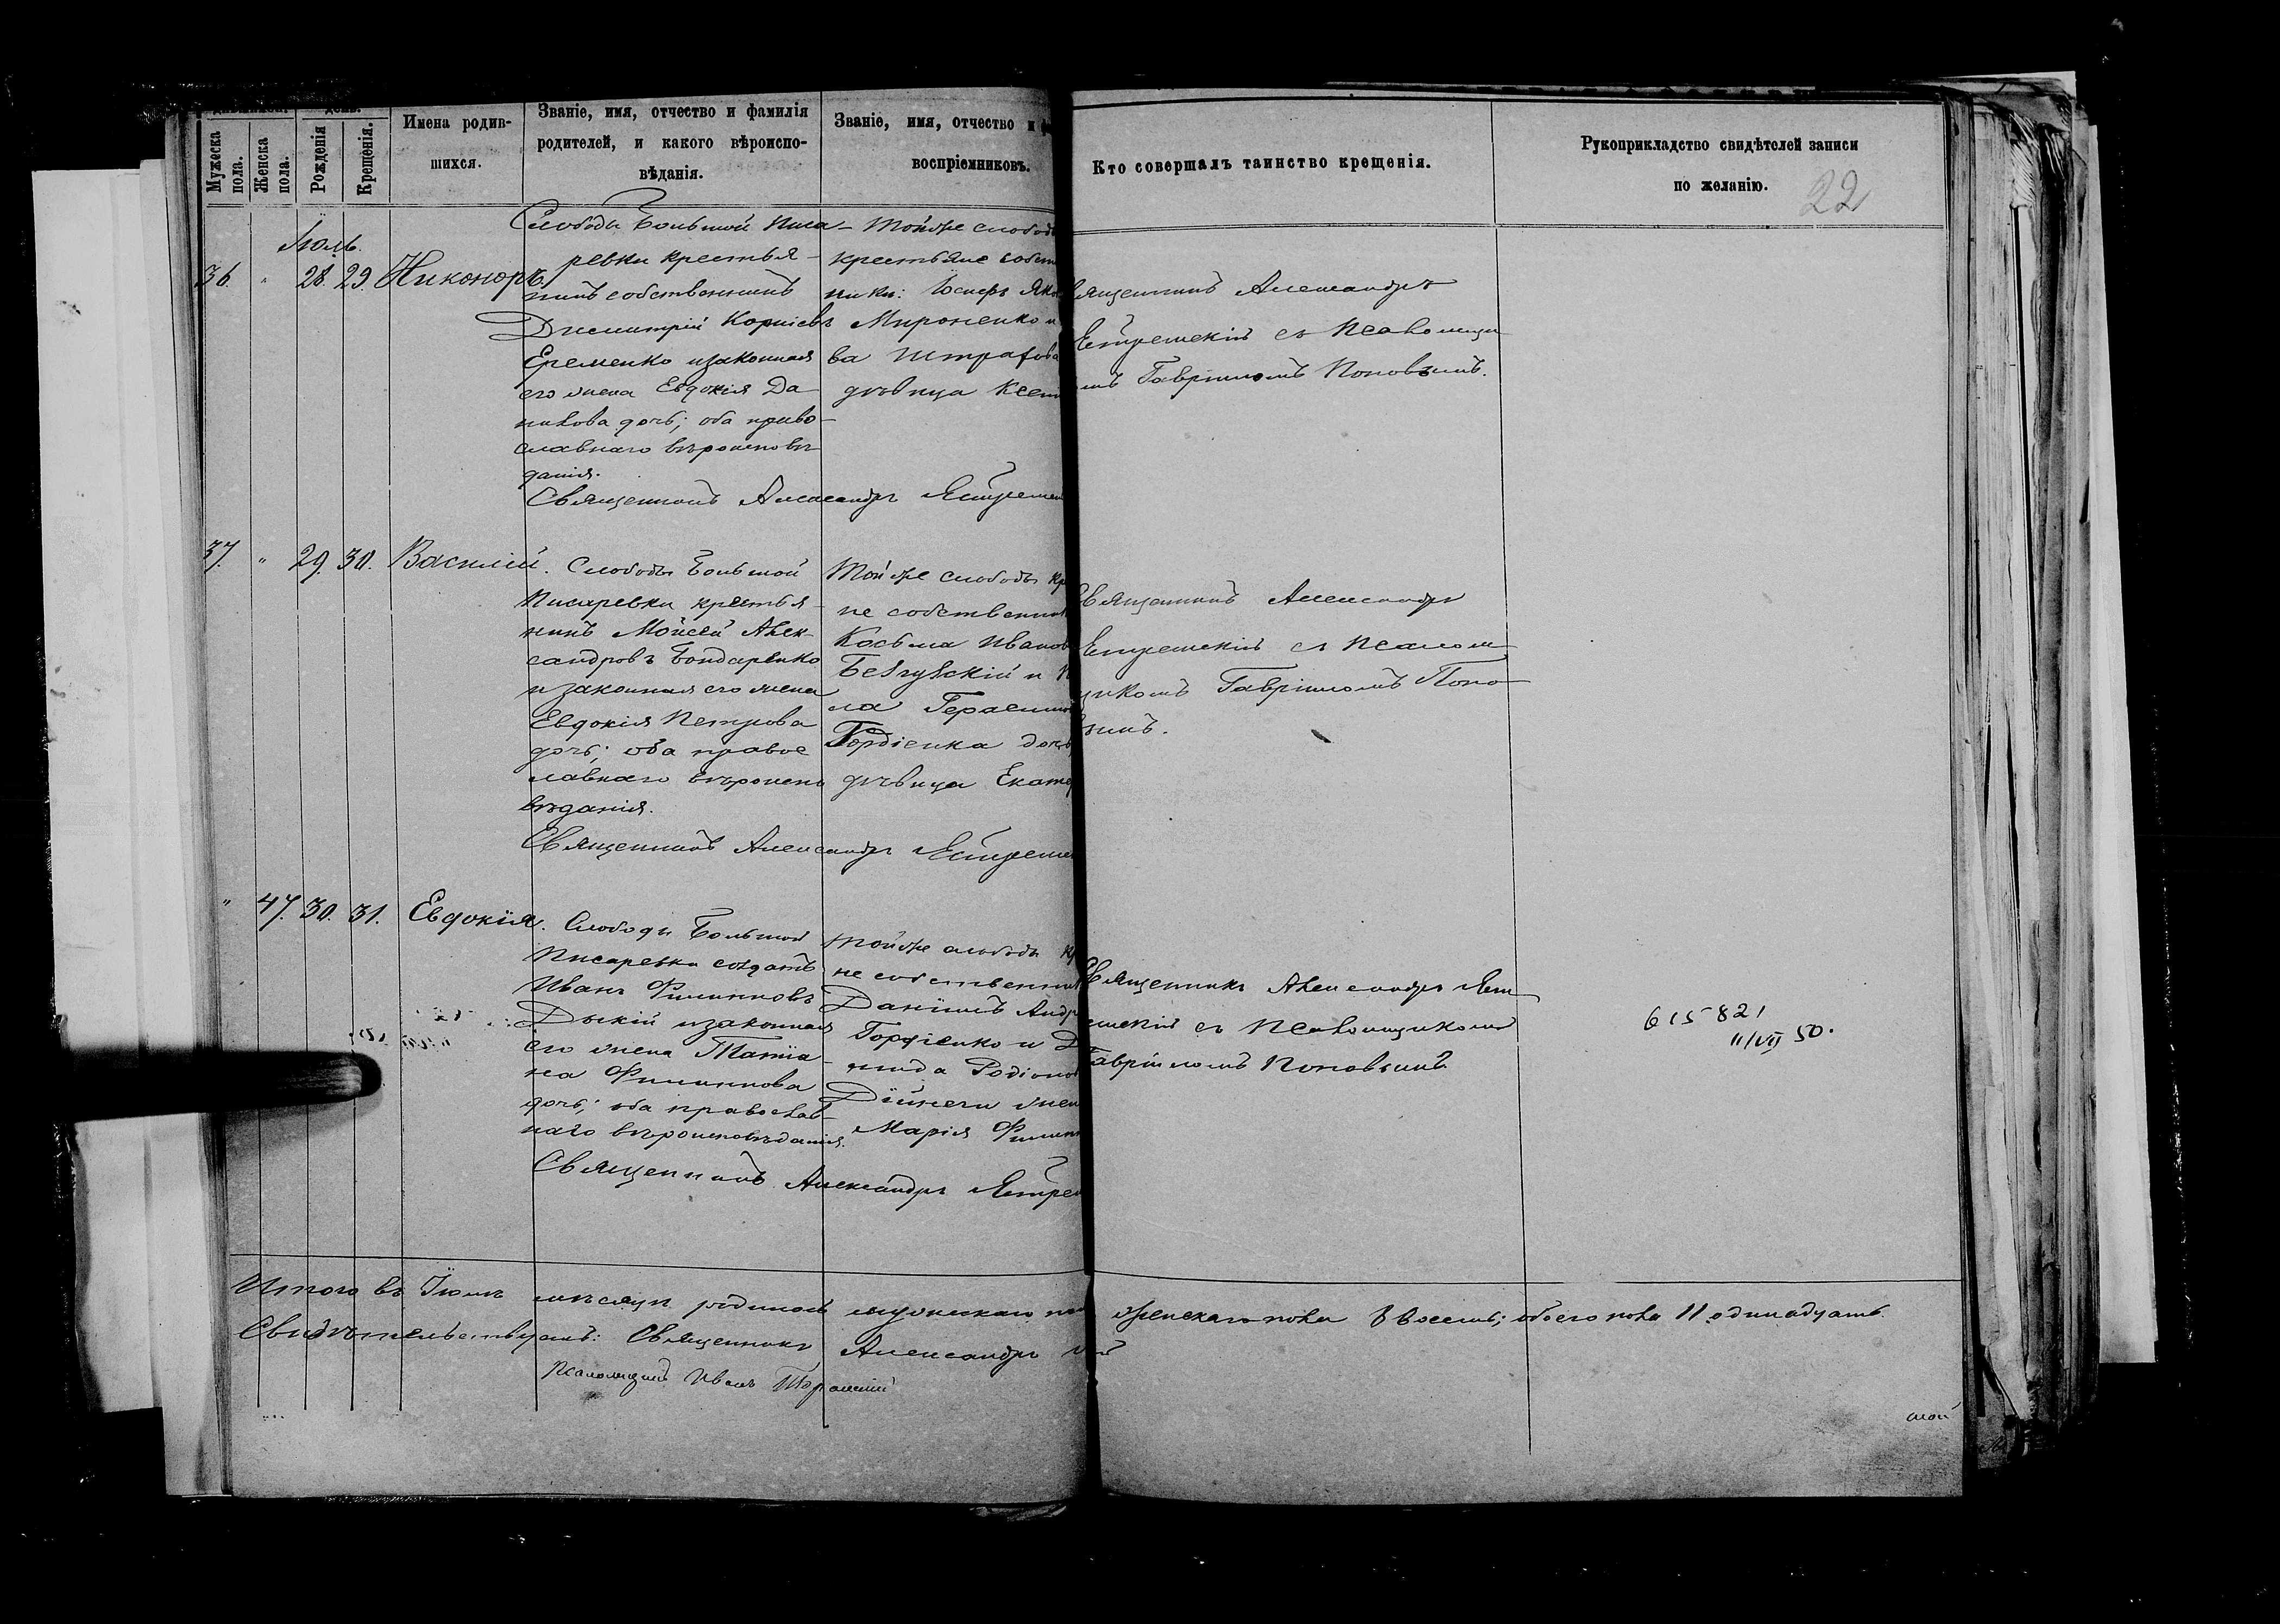 Мужеска пола.
Женска пола.
Рожденія
Крещенія.
Имена родив-
шихся.
Званіе, имя, отчество и фамилія
родителей, и какого вѣроиспо-
вѣданія.
Званіе, имя, отчество и
воспріемниковъ.
Кто совершалъ таинство крещенія.
Рукоприкладство свидѣтелей записи
по желанію.
22
Іюль.
36. " 28. 29. Никоноръ.
Слободы Большой Писа-
ревки крестья-
нинъ собственникъ
Димитрій Корніевъ
Еременко и законная
его жена Евдокія Да-
нилова дочь; оба право-
славнаго вѣроисповѣ
данія.
Тойже слободы
крестьяне собст
ники: Іосифъ Яко
Мироненко и
ва Штрафова
дѣвица Ксен
Священникъ Александръ
Ястремскій съ Псаломщи
комъ Гавріиломъ Поповымъ.
Священникъ Александръ Ястремс
37. " 29. 30. Василій.
Слободы Большой
Писаревки крестья-
нинъ Мойсей Алек-
сандровъ Бондаренко
и законная его жена
Евдокія Петрова
дочь; оба правос
лавнаго вѣроиспо
вѣданія.
Тойже слободы кр
не собственник
Косьма Иванов
ла Герасимов
Гордіенка дочь
дѣвица Екате
Священникъ Александръ
Ястремскій съ Псалом
щикомъ Гавріиломъ Попо
вымъ.
Священникъ Александръ Ястремс
" 47. 30. 31. Евдокія.
Слободы Большой
Писаревки солдатъ
Иванъ Филипповъ
Дикій и законная
его жена Татіа-
на Филиппова
дочь; оба православ-
наго вѣроисповѣданія.
Тойже слободы кр
не собственник
Даніилъ Андр
Гордіенко и Д
Родіонов
жен
Марія Филип
Священникъ Александръ Яст
ремскій съ Псаломщикомъ
Гавріиломъ Поповымъ
615821
11/VII 50.
Священникъ Александръ Ястрем
Итого въ Іюлѣ мѣсяцѣ родилось мужескаго по женскаго пола 8 восемь; обоего пола 11 одинадцать.
Свидѣтельствуютъ: Священникъ Александръ
Псаломщикъ Иванъ